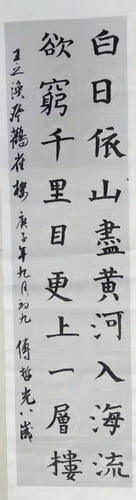 白日依山盡黃河入海流
欲窮千里目更上一層樓
王之渙登鸛雀樓 庚子年九月初九 傅哲光八歲